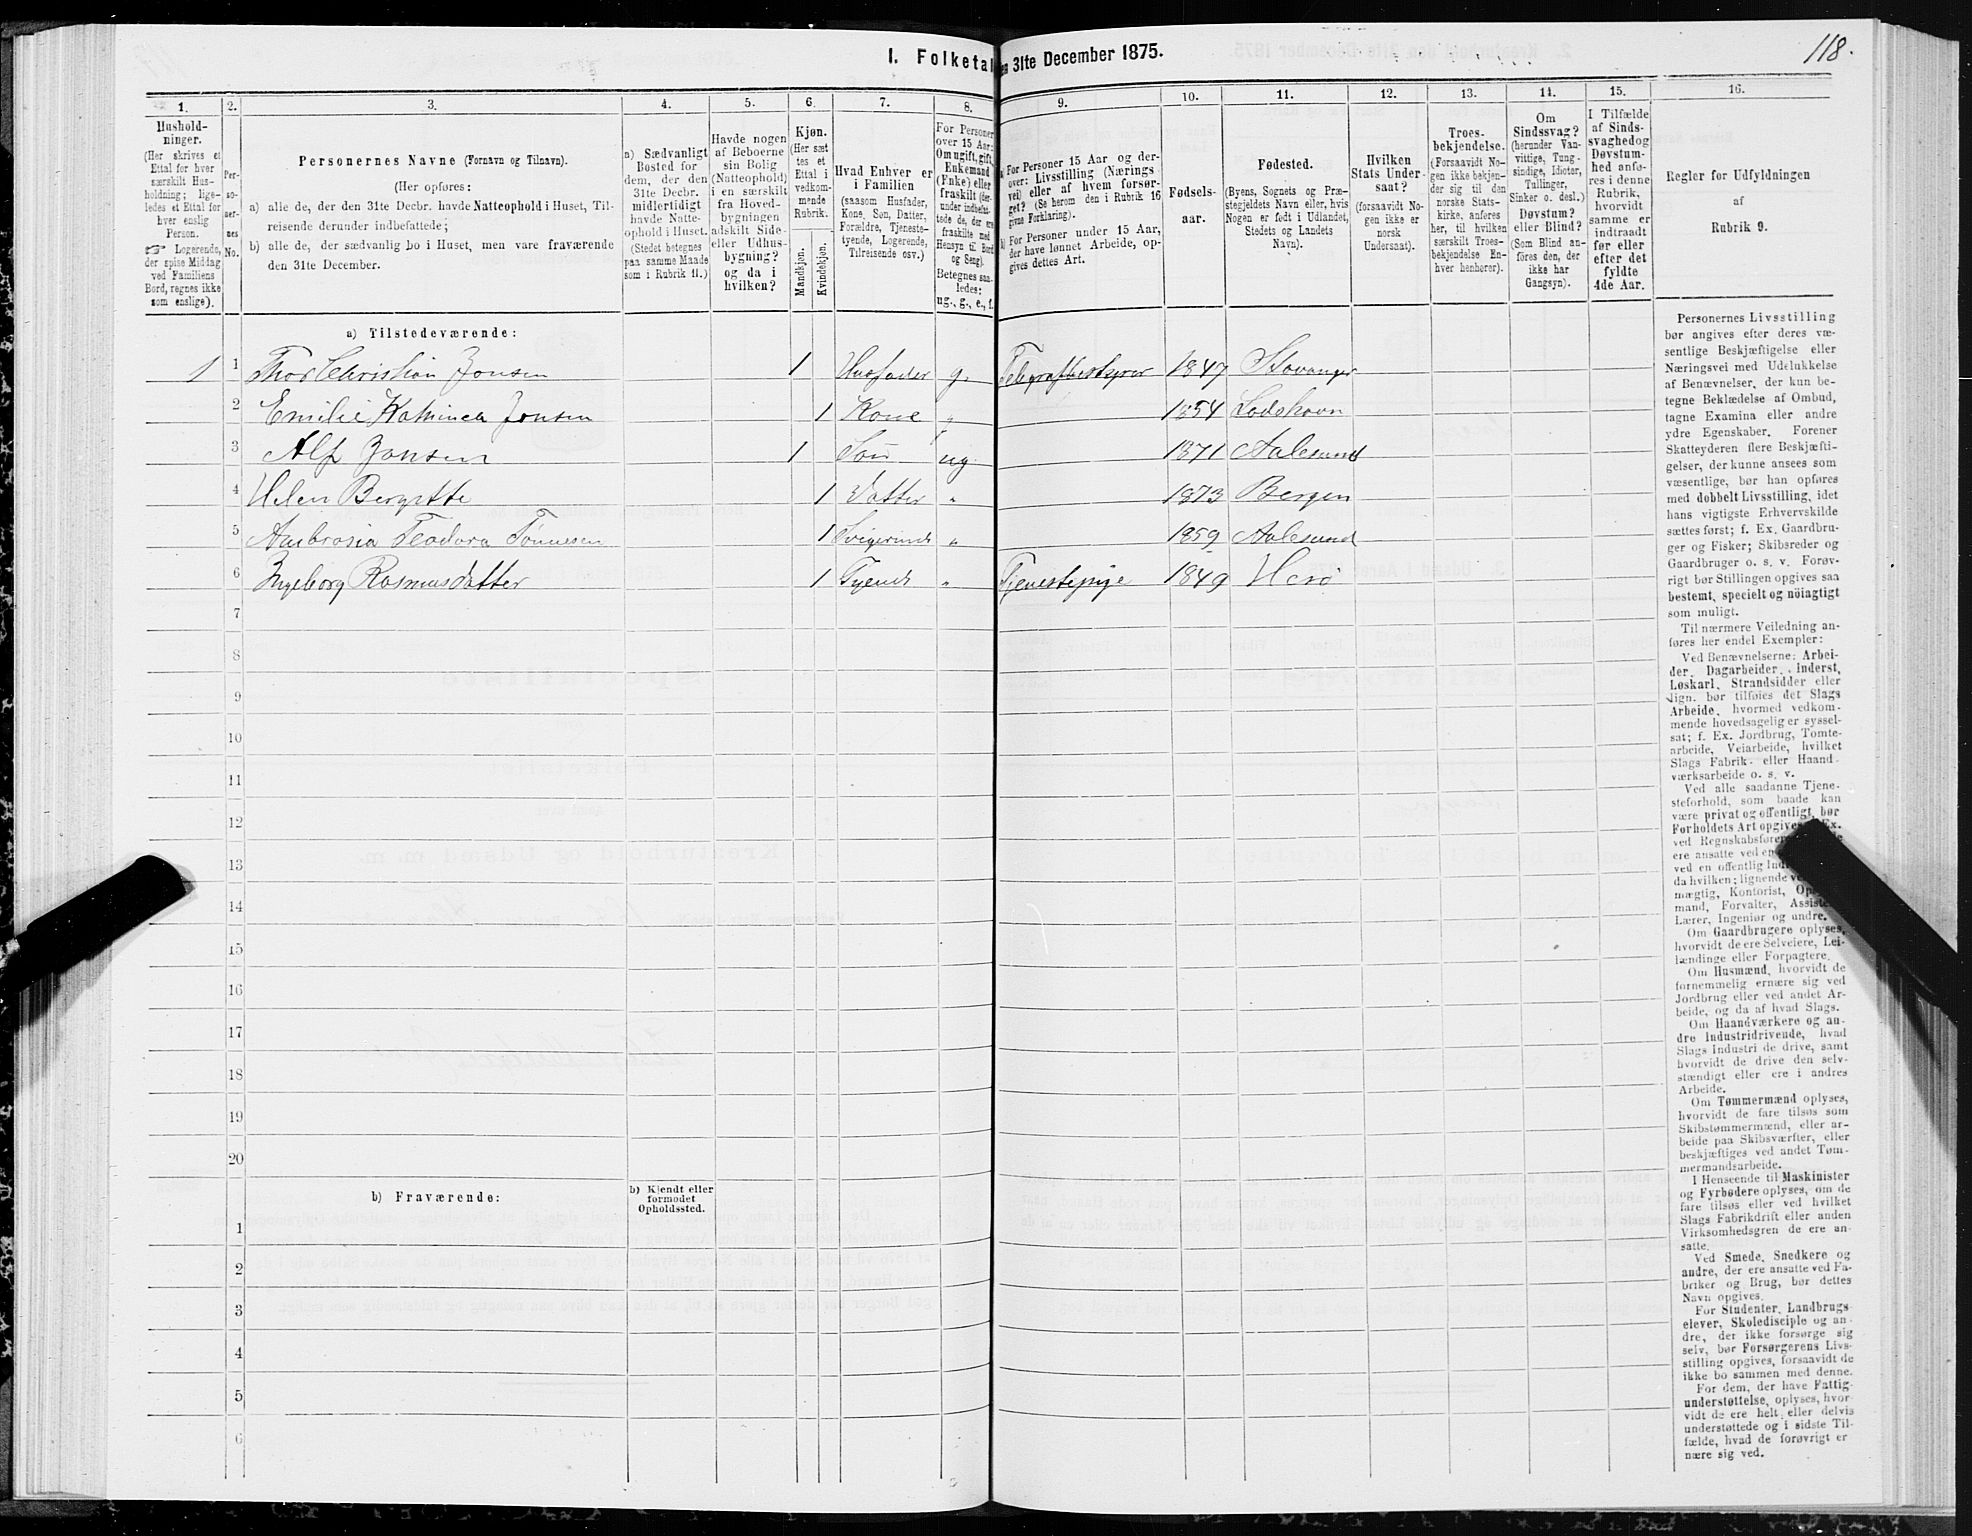 118.
I. Folketal
en 31te December 1875.
1.
2.
3.
4.
5.
6.
7.
8.
9.
10.
11.
12.
13.
14.
15.
16.
Hushold-
ninger.
(Her skrives et
Ettal for hver
særskilt Hus-
holdning; lige-
ledes et Ettal for
hver enslig
Person.
☞ Logerende,
der spise Middag
ved Familiens
Bord, regnes ikke
som enslige).
Per-
so-
ner-
nes
No.
Personernes Navne (Fornavn og Tilnavn).
(Her opføres:
a) alle de, der den 31te Decbr. havde Natteophold i Huset, Til-
reisende derunder indbefattede;
b) alle de, der sædvanlig bo i Huset, men vare fraværende
den 31te December.
a) Sædvanligt
Bosted for
dem, der den
31te Decbr.
midlertidigt
havde Natte-
ophold i Huset.
(Stedet betegnes
paa samme Maade
som i Rubrik 11.)
Havde nogen
af Beboerne
sin Bolig
(Natteophold)
i en særskilt
fra Hoved-
bygningen
adskilt Side-
eller Udhus-
bygning?
og da i
hvilken?
Kjøn.
(Her sæt
tes et
Ettal i
vedkom-
mende
Rubrik.
Mandkjøn.
Kvindekjøn.
Hvad Enhver er
i Familien
(saasom Husfader,
Kone, Søn, Datter,
Forældre, Tjeneste-
tyende, Logerende,
Tilreisende osv.)
For Personer
over 15 Aar:
Om ugift, gift,
Enkemand
(Enke) eller
fraskilt (der-
under indbefat-
tede de, der ere
fraskilte med
Hensyn til Bord
og Seng).
Betegnes saa-
ledes:
ug., g., e., f.
a) For Personer 15 Aar og der-
over: Livsstilling (Nærings
vei) eller af hvem forsør-
get? (Se herom den i Rubrik 16
givne Forklaring).
b) For Personer under 15 Aar,
der have lønnet Arbeide, op-
gives dettes Art.
Fødsels-
aar.
Fødested.
(Byens, Sognets og Præ-
stegjeldets Navn eller, hvis
Nogen er født i Udlandet,
Stedets og Landets
Navn).
Hvilken
Stats Under-
saat?
(forsaavidt No-
gen ikke er
norsk
Undersaat).
Troes-
bekjendelse.
(Forsaavidt No-
gen ikke bekjen-
der sig til den
norske Stats-
kirke, anføres
her, til hvilken
særskilt Troes-
bekjendelse En-
hver henhører).
Om
Sindssvag?
(herunder Van-
vittige, Tung-
sindige, Idioter,
Tullinger,
Sinker o. desl.)
Døvstum?
eller Blind?
(Som Blind an-
føres den, der
ikke har
Gangsyn).
I Tilfælde
af Sinds-
svaghed og
Døvstum-
hed anfø-
res i denne
Rubrik,
hvorvidt
samme er
indtraadt
før eller
efter det
fyldte
4de Aar.
Regler for Udfyldningen
af
Rubrik 9.
a) Tilstedeværende:
1 1 Thor Christian Jonsen 1 Husfader g. Telegrafbestyrer 1847 Stavanger
2 Emilie Kathinea Jonsen 1 Kone „ 1854 Lodshavn
3 Alf Jonsen 1 Søn ug. 1871 Aalesund
4 Helen Bergitte 1 Datter „ 1873 Bergen
5 Ambrosia Teodora Tønnesen 1 „ 1859 Aalesund
6 Ingeborg Rasmusdatter 1 Tyende „ Tjenestepige 1849 Herø
7
8
9
10
11
12
13
14
15
16
17
18
19
20
b) Fraværende:
b) Kjendt eller
formodet
Opholdssted.
1
2
3
4
5
6
Personernes Livsstilling
bør angives efter deres væ-
sentlige Beskjæftigelse eller
Næringsvei med Udelukkelse
af Benævnelser, der kun be-
tegne Beklædelse af Ombud,
tagne Examina eller andre
ydre Egenskaber. Forener
Skatteyderen flere Beskjæfti-
gelser, der kunne ansees som
væsentlige, bør han opføres
med dobbelt Livsstilling, idet
hans vigtigste Erhvervskilde
sættes først; f. Ex. Gaardbru-
ger og Fisker; Skibsreder og
Gaardbruger o. s. v. Forøv-
rigt bør Stillingen opgives saa
bestemt, specielt og nöiagtigt
som muligt.
Til nærmere Veiledning an-
føres her endel Exempler:
Ved Benævnelserne: Arbei-
der, Dagarbeider, Inderst,
Løskarl, Strandsidder eller
lign. bør tilføies det Slags
Arbeide, hvormed vedkom-
mende hovedsagelig er syssel-
sat; f. Ex. Jordbrug, Tomte-
arbeide, Veiarbeide, hvilket
Slags Fabrik- eller Haand-
værksarbeide o. s. v.
Ved alle saadanne Tjene-
steforhold, som baade kan
være privat og offentligt, bør
Forholdets Art opgives, Ex.
ved Regnskabsførere
ere ansatte ved en
ved en offentlig
da hvilken; lignende
mægtig, Kontorist,
mand, Forvalter,
Lærer, Ingeniør og andre.
Om Gaardbrugere oplyses,
hvorvidt de ere Selveiere, Lei-
lændinge eller Forpagtere.
Om Husmænd, hvorvidt de
fornemmelig ernære sig ved
Jordbrug eller ved andet Ar-
beide, og da af hvad Slags.
Om Haandværkere og an-
dre Industridrivende, hvad
Slags Industri de drive, samt
hvorvidt de drive den selv-
stændigt eller ere i andres
Arbeide.
Om Tømmermænd oplyses,
hvorvidt de fare tilsøs som
Skibstømmermænd, eller ar-
beide paa Skibsværfter, eller
beskjæftiges ved andet Tøm-
mermandsarbeide.
I Henseende til Maskinister
og Fyrbødere oplyses, om de
fare tilsøs eller ved hvilket
Slags Fabrikdrift eller anden
Virksomhedsgren de ere an-
satte.
Ved Smede, Snedkere og
andre, der ere ansatte ved Fa-
briker og Brug, bør dettes
Navn opgives.
For Studenter, Landbrugs-
elever, Skoledisciple og an-
dre, der ikke forsørge sig
selv, bør Forsørgerens Livs-
stilling opgives, forsaavidt de
ikke bo sammen med denne.
For dem, der have Fattig-
understøttelse, oplyses, hvor-
vidt de ere helt eller delvis
understøttede og i sidste Til-
fælde, hvad de forøvrigt er
nære sig ved.